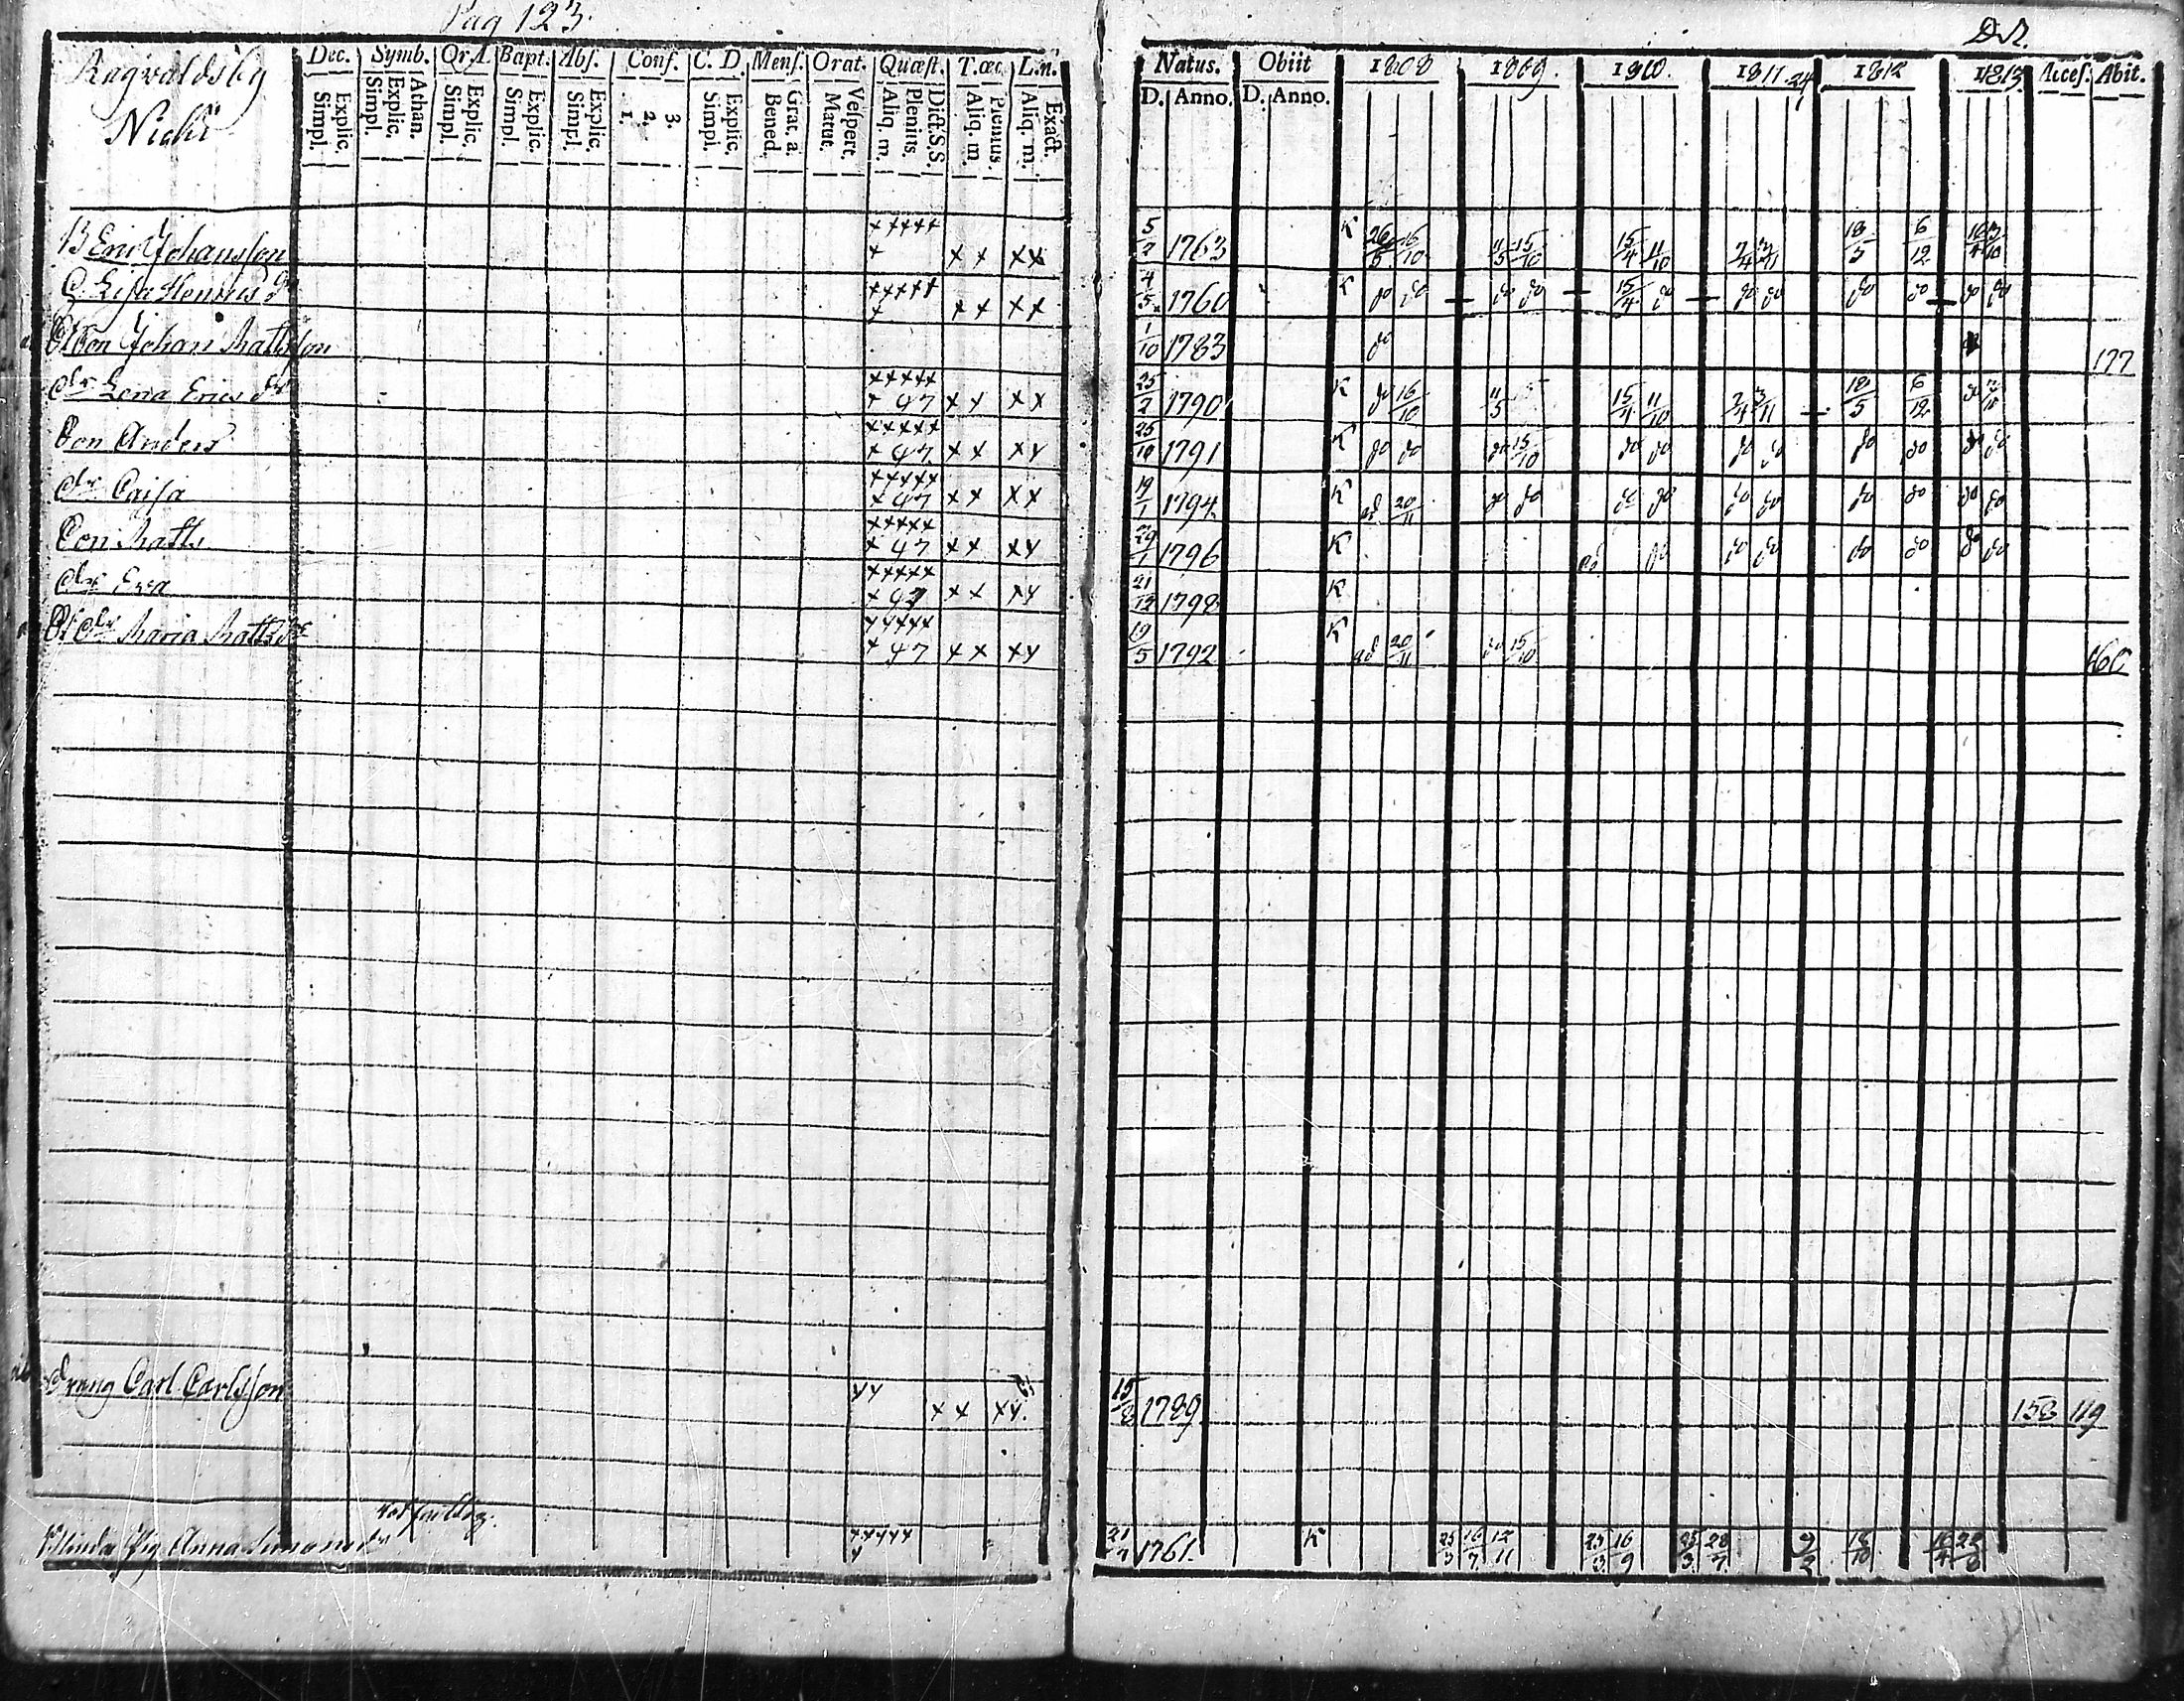 Pag 123.
Ragvaldsby
Nichu
Dec. Symb. Or. D. Bapt. Abs. Conf. C. D. Mens. Orat. Quæst. T. œc. L. n.
Simpl. Explic. Simpl. Explic. Athan. Simpl. Explic. Simpl. Explic. Simpl. Explic. 1. 2. 3. Simpl. Explic. Bened. Grat. a. Matut. Vespert. Aliq. m. Plenius. Dict. S.S. Aliq. m. Plenius. Aliq. m. Exact.
Natus. Obiit 1808 1809. 1810. 1811. 1812 1813 Acces. Abit.
D. Anno. D. Anno.
B Eric Johansson 5/2 1763 K 26/5 16/10 11/5 15/10 15/4 11/10 2/4 3/11 18/5 6/12
Lisa 4/5 1760 K do do do do 15/4 do do do do do do do
Johan Mattsson 1/10 1783 do 177
dr Lena Erics dr 47 25/2 1790 K do 16/10 11/5 15/4 11/10 2/4 3/11 18/5 6/12 do
Son Anders 47 25/10 1791 K do do do 15/10 do do do do do do do do
dr Caisa 47 19/1 1794 K ad 20/11 do do do do do do do do do do
Son Matts 47 29/1 1796 K ad do do do do do do do
dr Eva 21/12 1798 K
dr Maria Matts dr 47 19/5 1792 K ad 20/11 do 15/10 160
Dreng Carl Carlsson 15/8 1789 158 119
Blinda Pig Anna Simons dr 21/7 1761. K 25/3 16/7 12/11 25/3 16/9 25/3 28/7 9/2 18/10